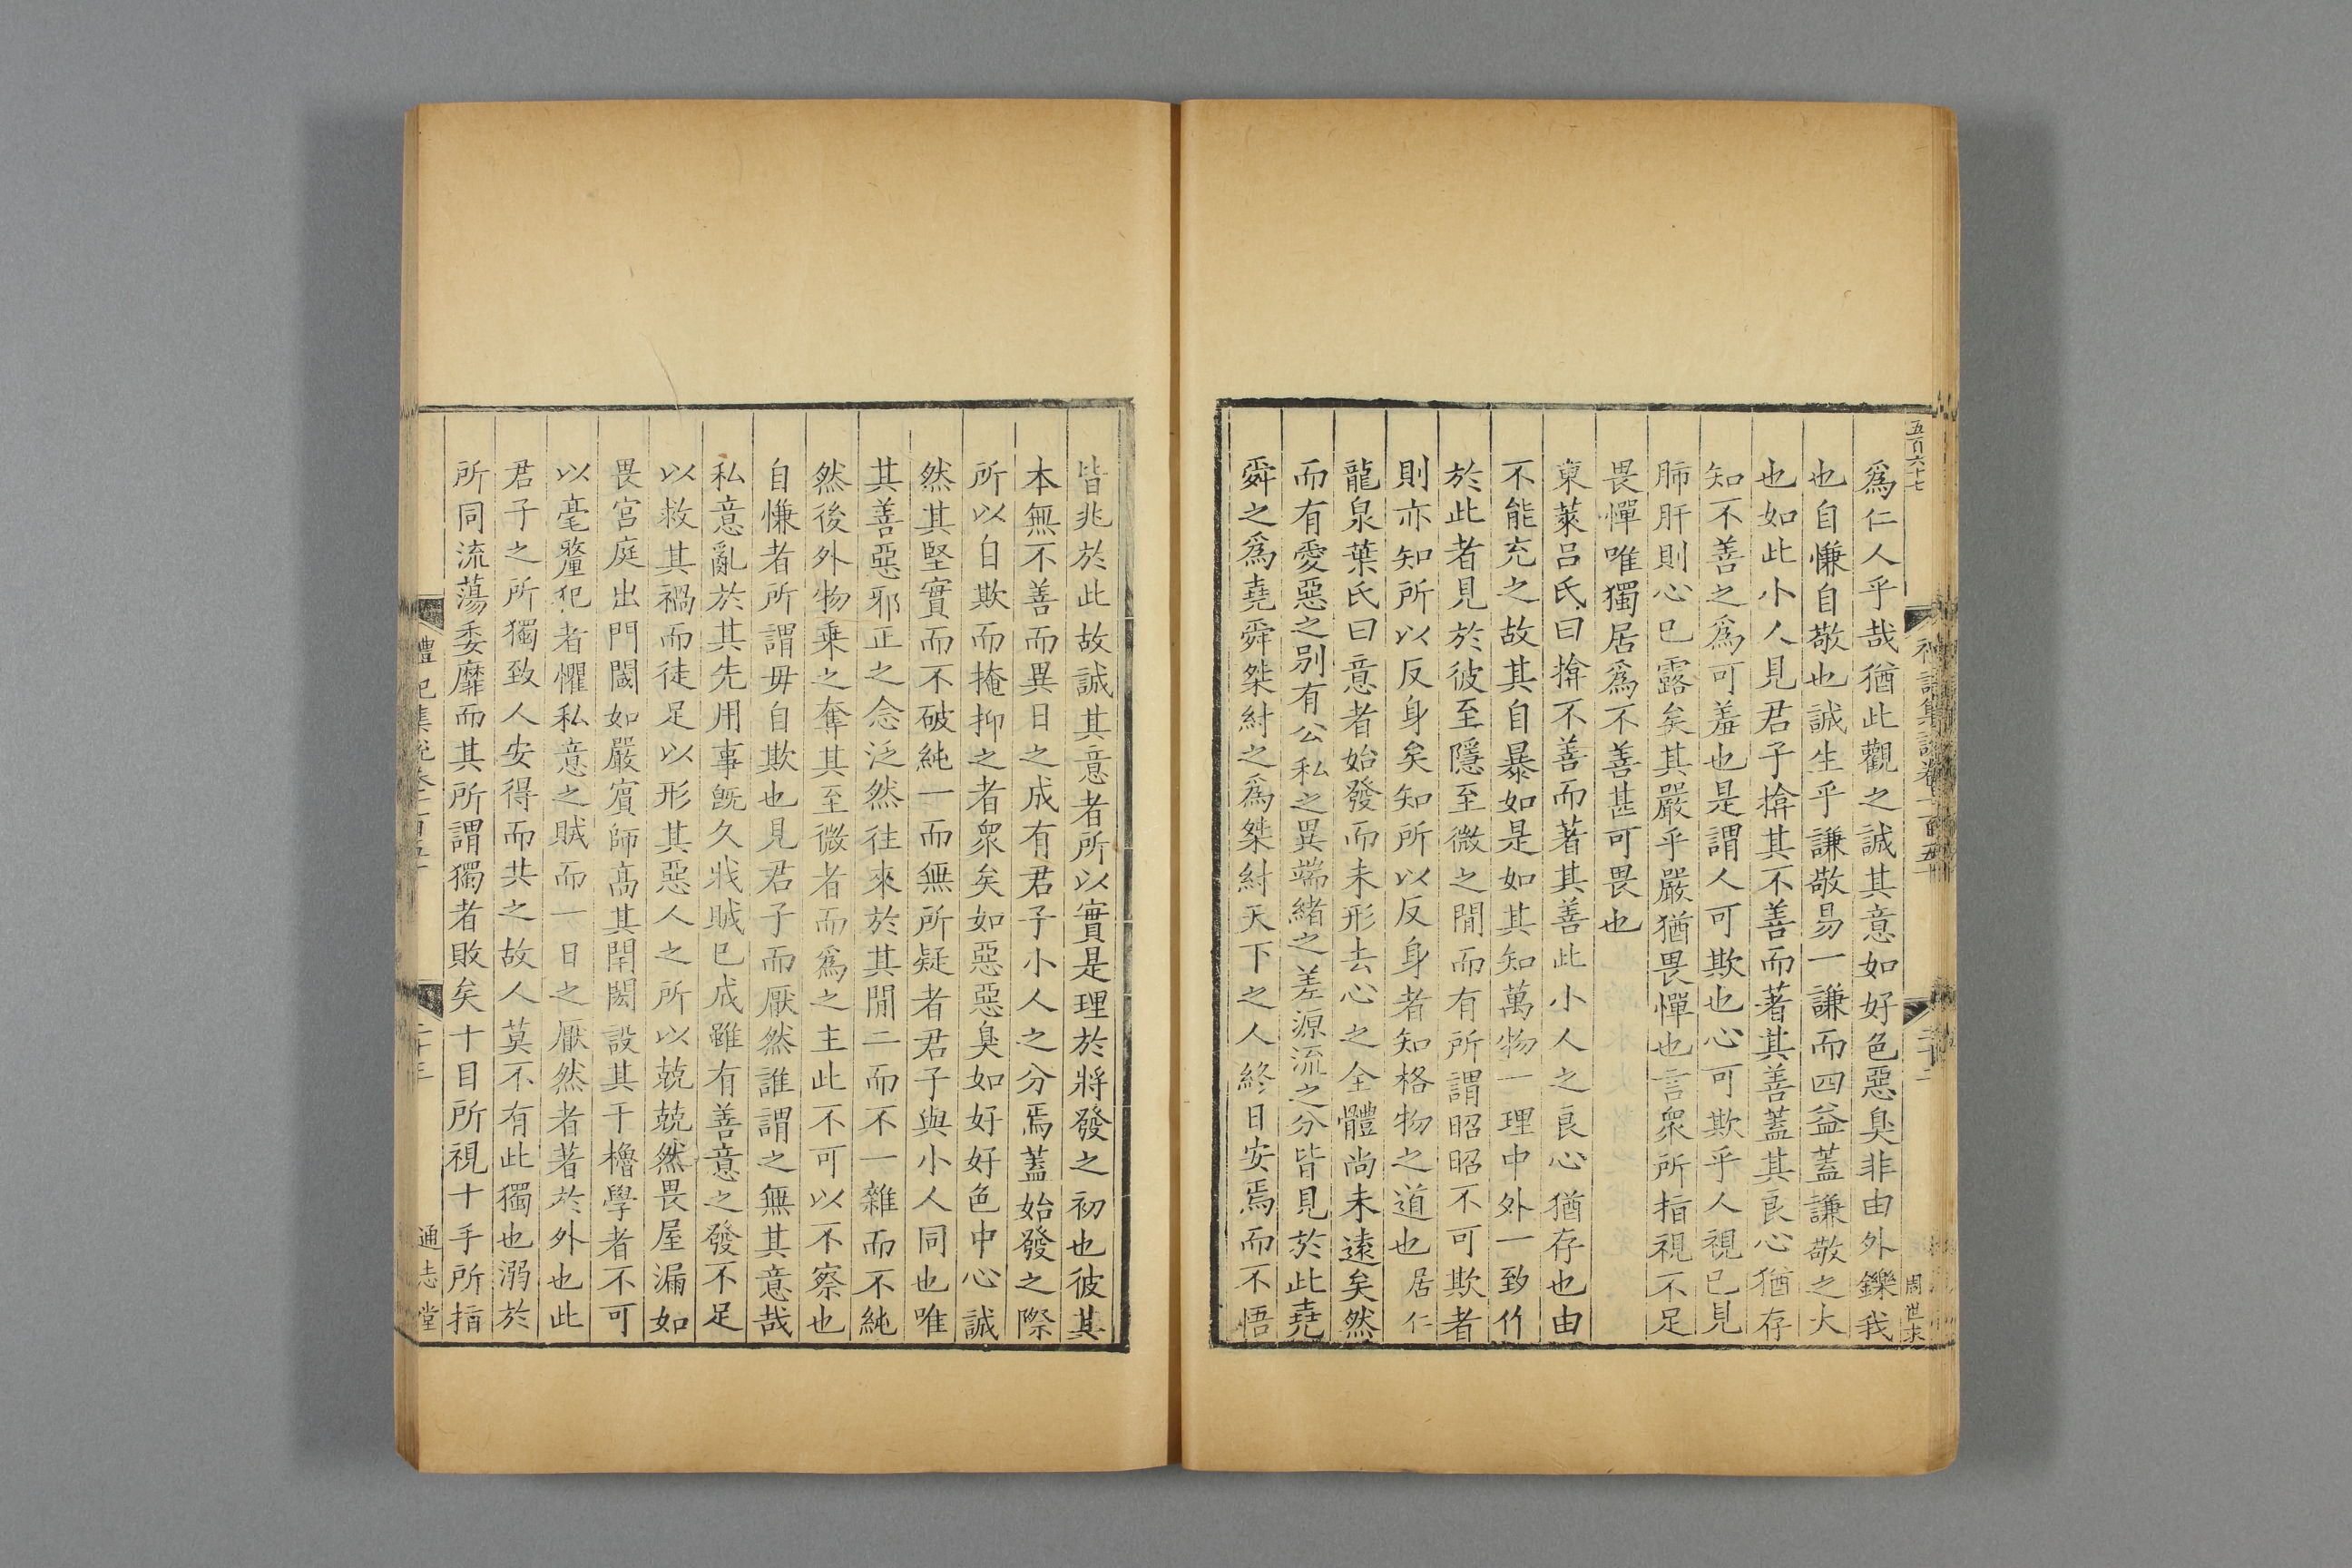 五百六十七
爲仁人乎哉猶此觀之誠其意如好色惡臭非由外鑠我
也自慊自敬也誠生乎謙敬易一謙而四益蓋謙敬之大
也如此小人見君子揜其不善而著其善蓋其良心猶存
知不善之爲可羞也是謂人可欺也心可欺乎人視已見
肺肝則心已露矣其嚴乎嚴猶畏憚也言衆所指視不足
畏憚唯獨居爲不善甚可畏也
東萊呂氏曰揜不善而著其善此小人之良心猶存也由
不能充之故其自暴如是如其知萬物一理中外一致作
於此者見於彼至隱至微之閒而有所謂昭昭不可欺者
則亦知所以反身矣知所以反身者知格物之道也 居仁
龍泉葉氏曰意者始發而未形去心之全體尚未遠矣然
而有愛惡之别有公私之異端緒之差源流之分皆見於此堯
舜之爲堯舜桀紂之爲桀紂天下之人終日安焉而不悟
皆兆於此故誠其意者所以實是理於將發之初也彼其
本無不善而異日之成有君子小人之分焉蓋始發之際
所以自欺而掩抑之者衆矣如惡惡臭如好好色中心誠
然其堅實而不破純一而無所疑者君子與小人同也唯
其善惡邪正之念泛然往來於其閒二而不一雜而不純
然後外物乗之奪其至微者而爲之主此不可以不察也
自慊者所謂毋自欺也見君子而厭然誰謂之無其意哉
私意亂於其先用事旣久戕賊已成雖有善意之發不足
以救其禍而徒足以形其惡人之所以兢兢然畏屋漏如
畏宮庭出門閾如嚴賓師高其閈閎設其干櫓學者不可
以毫釐犯者懼私意之賊而一日之厭然者著於外也此
君子之所獨致人安得而共之故人莫不有此獨也溺於
所同流蕩委靡而其所謂獨者敗矣十目所視十手所指
禮記集說卷一百五十
通志堂